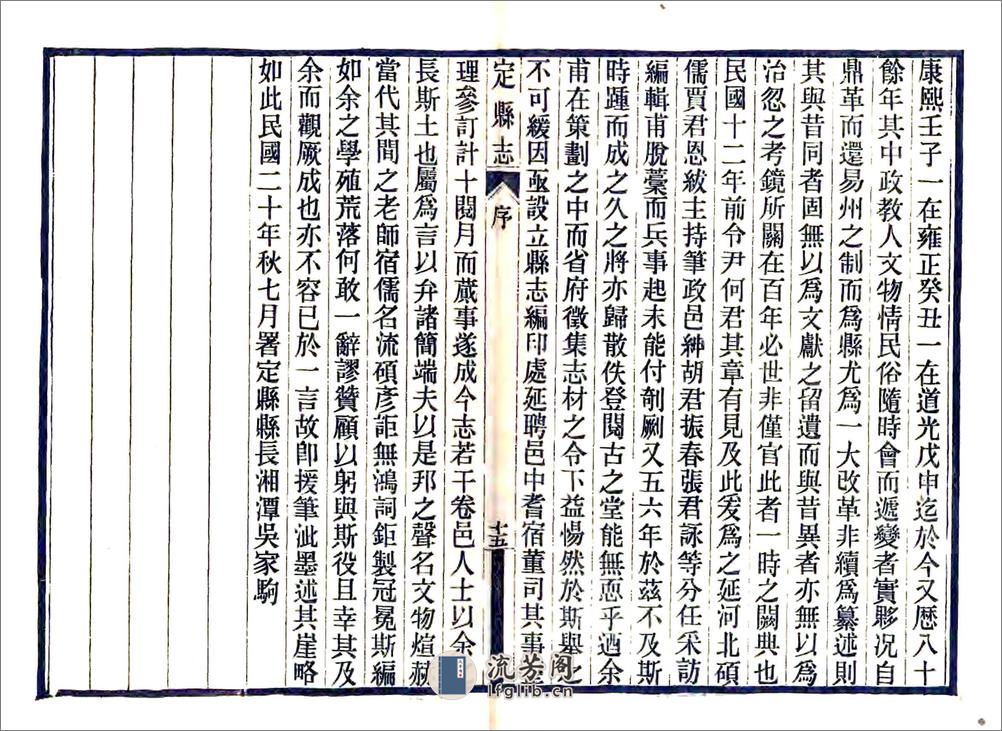 康熙壬子一在雍正癸丑一在道光戊申迄於今又歷八十
餘年其中政教人文物情民俗隨時會而遞變者實夥況自
鼎革而還易州之制而爲縣尤爲一大改革非續爲纂述則
其與昔同者固無以爲文獻之留遺而與昔異者亦無以爲
治忽之考鏡所關在百年必世非僅官此者一時之闕典也
民國十二年前令尹何君其章有見及此爰爲之延河北碩
儒賈君恩紱主持筆政邑紳胡君振春張君詠等分任采訪
編輯甫脫藁而兵事起未能付剞劂又五六年於茲不及斯
時踵而成之久之將亦歸散佚登閱古之堂能無恧乎迺余
甫在策劃之中而省府徵集志材之令下益惕然於斯舉之
不可緩因亟設立縣志編印處延聘邑中耆宿董司其事
定縣志
序
十五
理參訂計十閱月而蕆事遂成今志若干卷邑人士以余
長斯土也屬爲言以弁諸簡端夫以是邦之聲名文物煊赫
當代其間之老師宿儒名流碩彥詎無鴻詞鉅製冠冕斯編
如余之學殖荒落何敢一辭謬贊顧以躬與斯役且幸其及
余而觀厥成也亦不容已於一言故卽援筆泚墨述其崖略
如此民國二十年秋七月署定縣縣長湘潭吳家駒
流芳阁
lfglib.cn